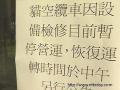 貓空纜車因設
備檢修目前暫
停營運，恢復運
轉時間於中午
另行